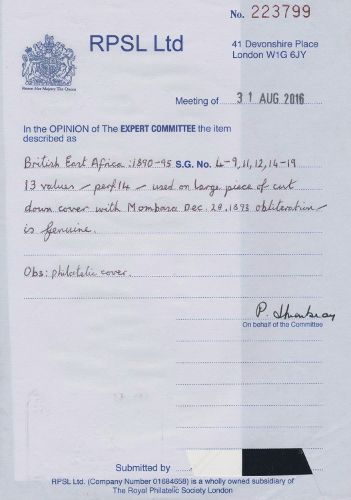 No. 223799
RPSL Ltd
41 Devonshire Place
London W1G 6JY
Meeting of 31 AUG 2016
In the OPINION of The EXPERT COMMITTEE the item
described as
British East Africa: 1890-95 S.G. No. 4-9, 11, 12, 14-19
13 values - perf 14 - used on large piece of cut
down cover with Mombasa Dec. 29. 1893 obliteration -
is genuine.
Obs: philatelic cover.
On behalf of the Committee
Submitted by
RPSL Ltd. (Company Number 01684658) is a wholly owned subsidiary of
The Royal Philatelic Society London